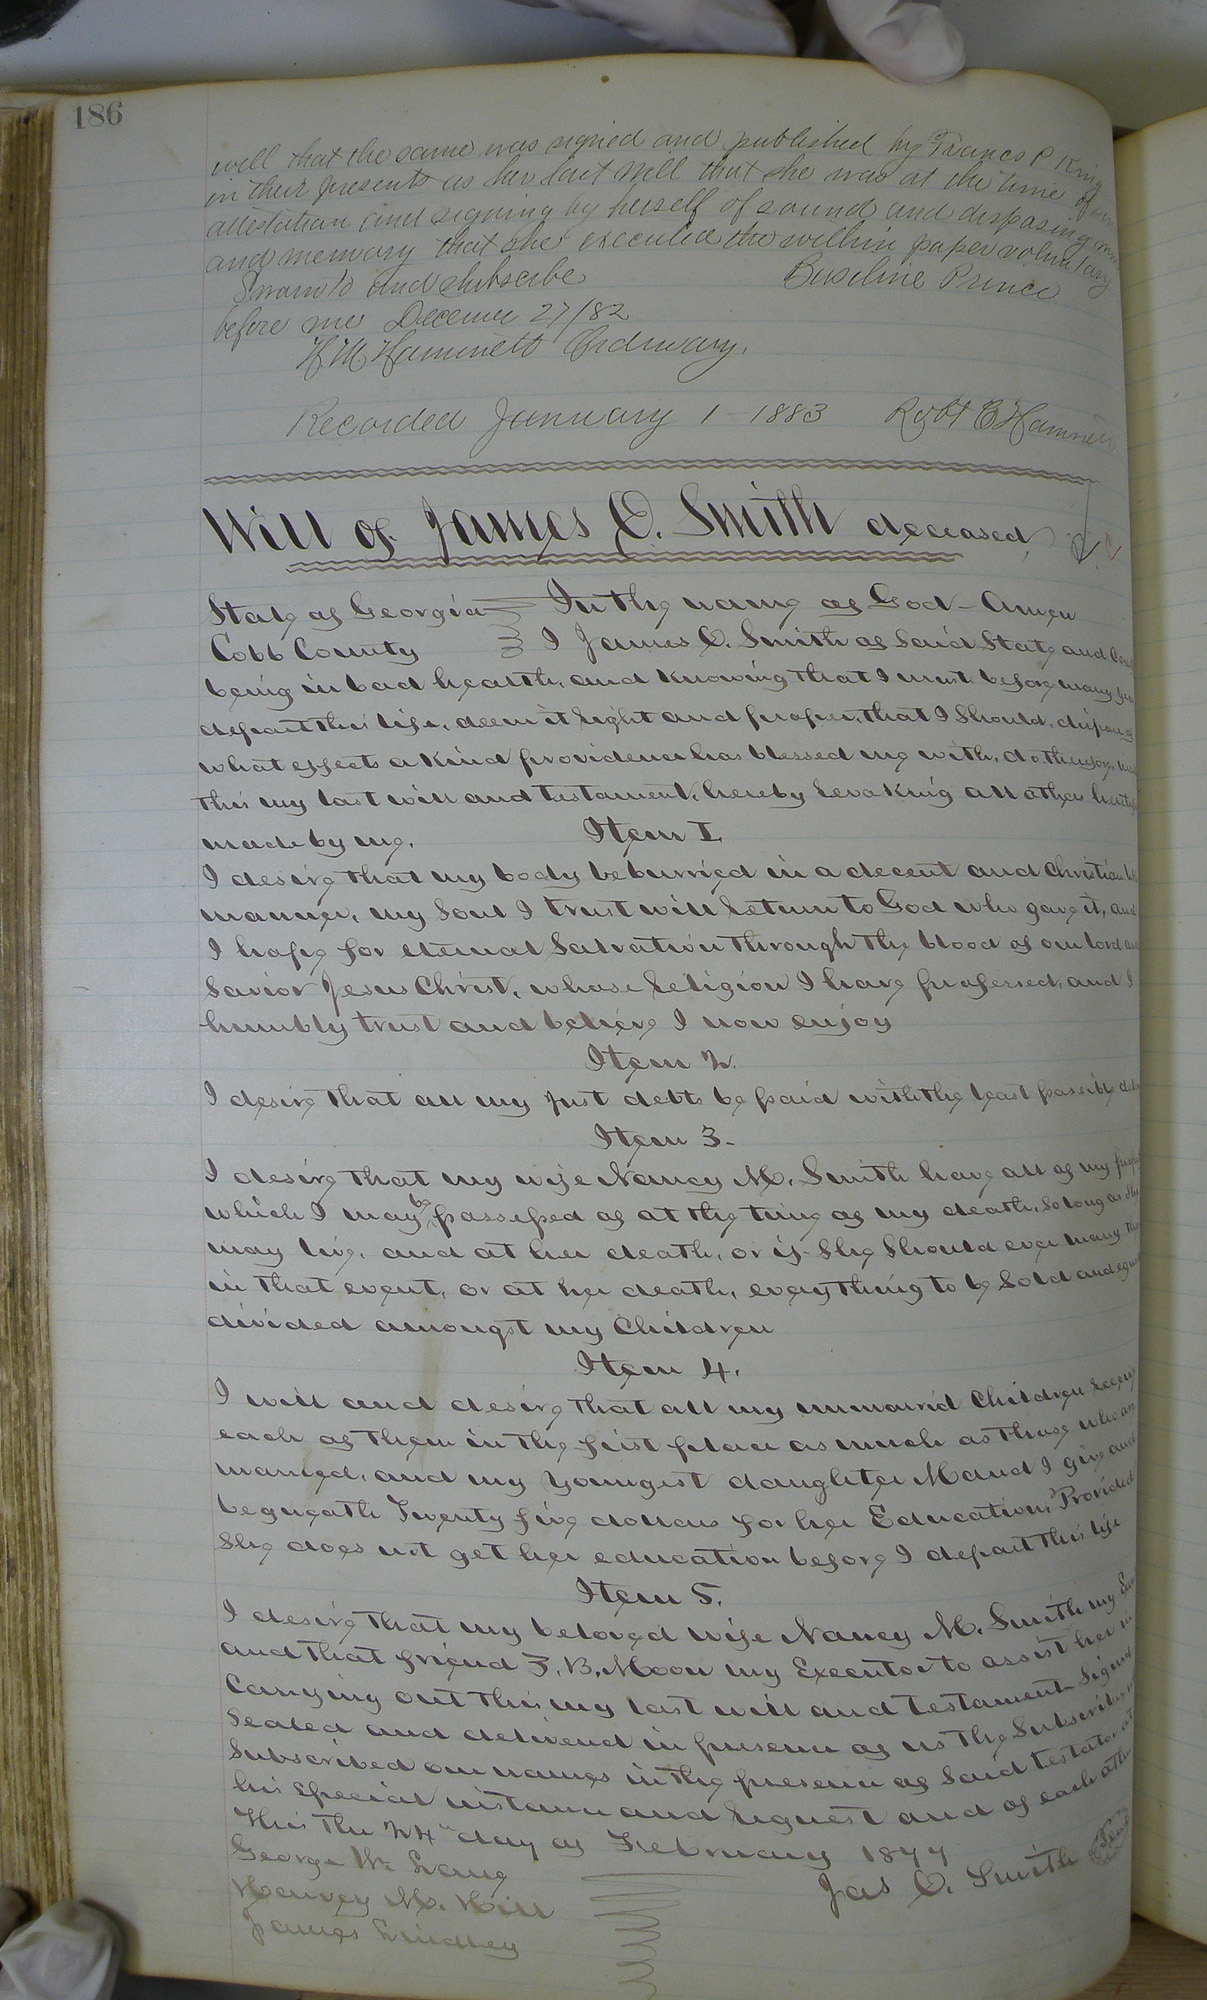 186
will that the same was signed and published by Frances P King
in their presents as her last Will that she was at the time of
attestation and signing by herself of sound and disposing
and memory that she executed the within paper volentary
Sworn to and Subscribe Buseline Prince
before me Decemer 27/82
H M Hammett Ordinary.
Recorded January 1 1883 Robt E Hammett
Will of James O. Smith deceased,
State of Georgia In the name of God - Amen
Cobb County I James O. Smith of Said State and
being in bad health, and knowing that I must before many
depart this life, deem it right and proper, that I should, dispose of
what effects a Kind providence has blessed me with, do therefore
this my last will and testament, hereby revoking all others
made by me. Item I.
I desire that my body be burried in a decent and Christian
manner, my Soul I trust will return to God who gave it, and
I hope for eternal Salvation through the blood of our lord
Savior Jesus Christ, whose religion I have professed, and I
humbly trust and believe I now enjoy
Item 2.
I desire that all my just debts be paid with the least possible
Item 3.
I desire that my wife Nancy M. Smith have all of my
which I may be possessed of at the time of my death, So long as She
may live, and at her death, or if She Should ever marry
in that event, or at her death, everything to be Sold and
divided amongst my Children
Item 4.
I will and desire that all my unmarrid Children
each of them in the first place as much as those who are
married, and my Youngest daughter Maud I give and
bequeath Twenty five dollars for her Education, Provided
She does not get her education before I depart this life
Item 5.
I desire that my beloved wife Nancy M. Smith my
and that friend J. B. Moon my Executor to assist her in
Carrying out this my last will and testament Signed
Sealed and delivered in presence of us the Subscribers
Subscribed our names in the presence of Said testator at
his Special instance and request and of each other
This the 24" day of February 1877
George W. Lang Jas O. Smith
Harvey M. Hill
James Lindley